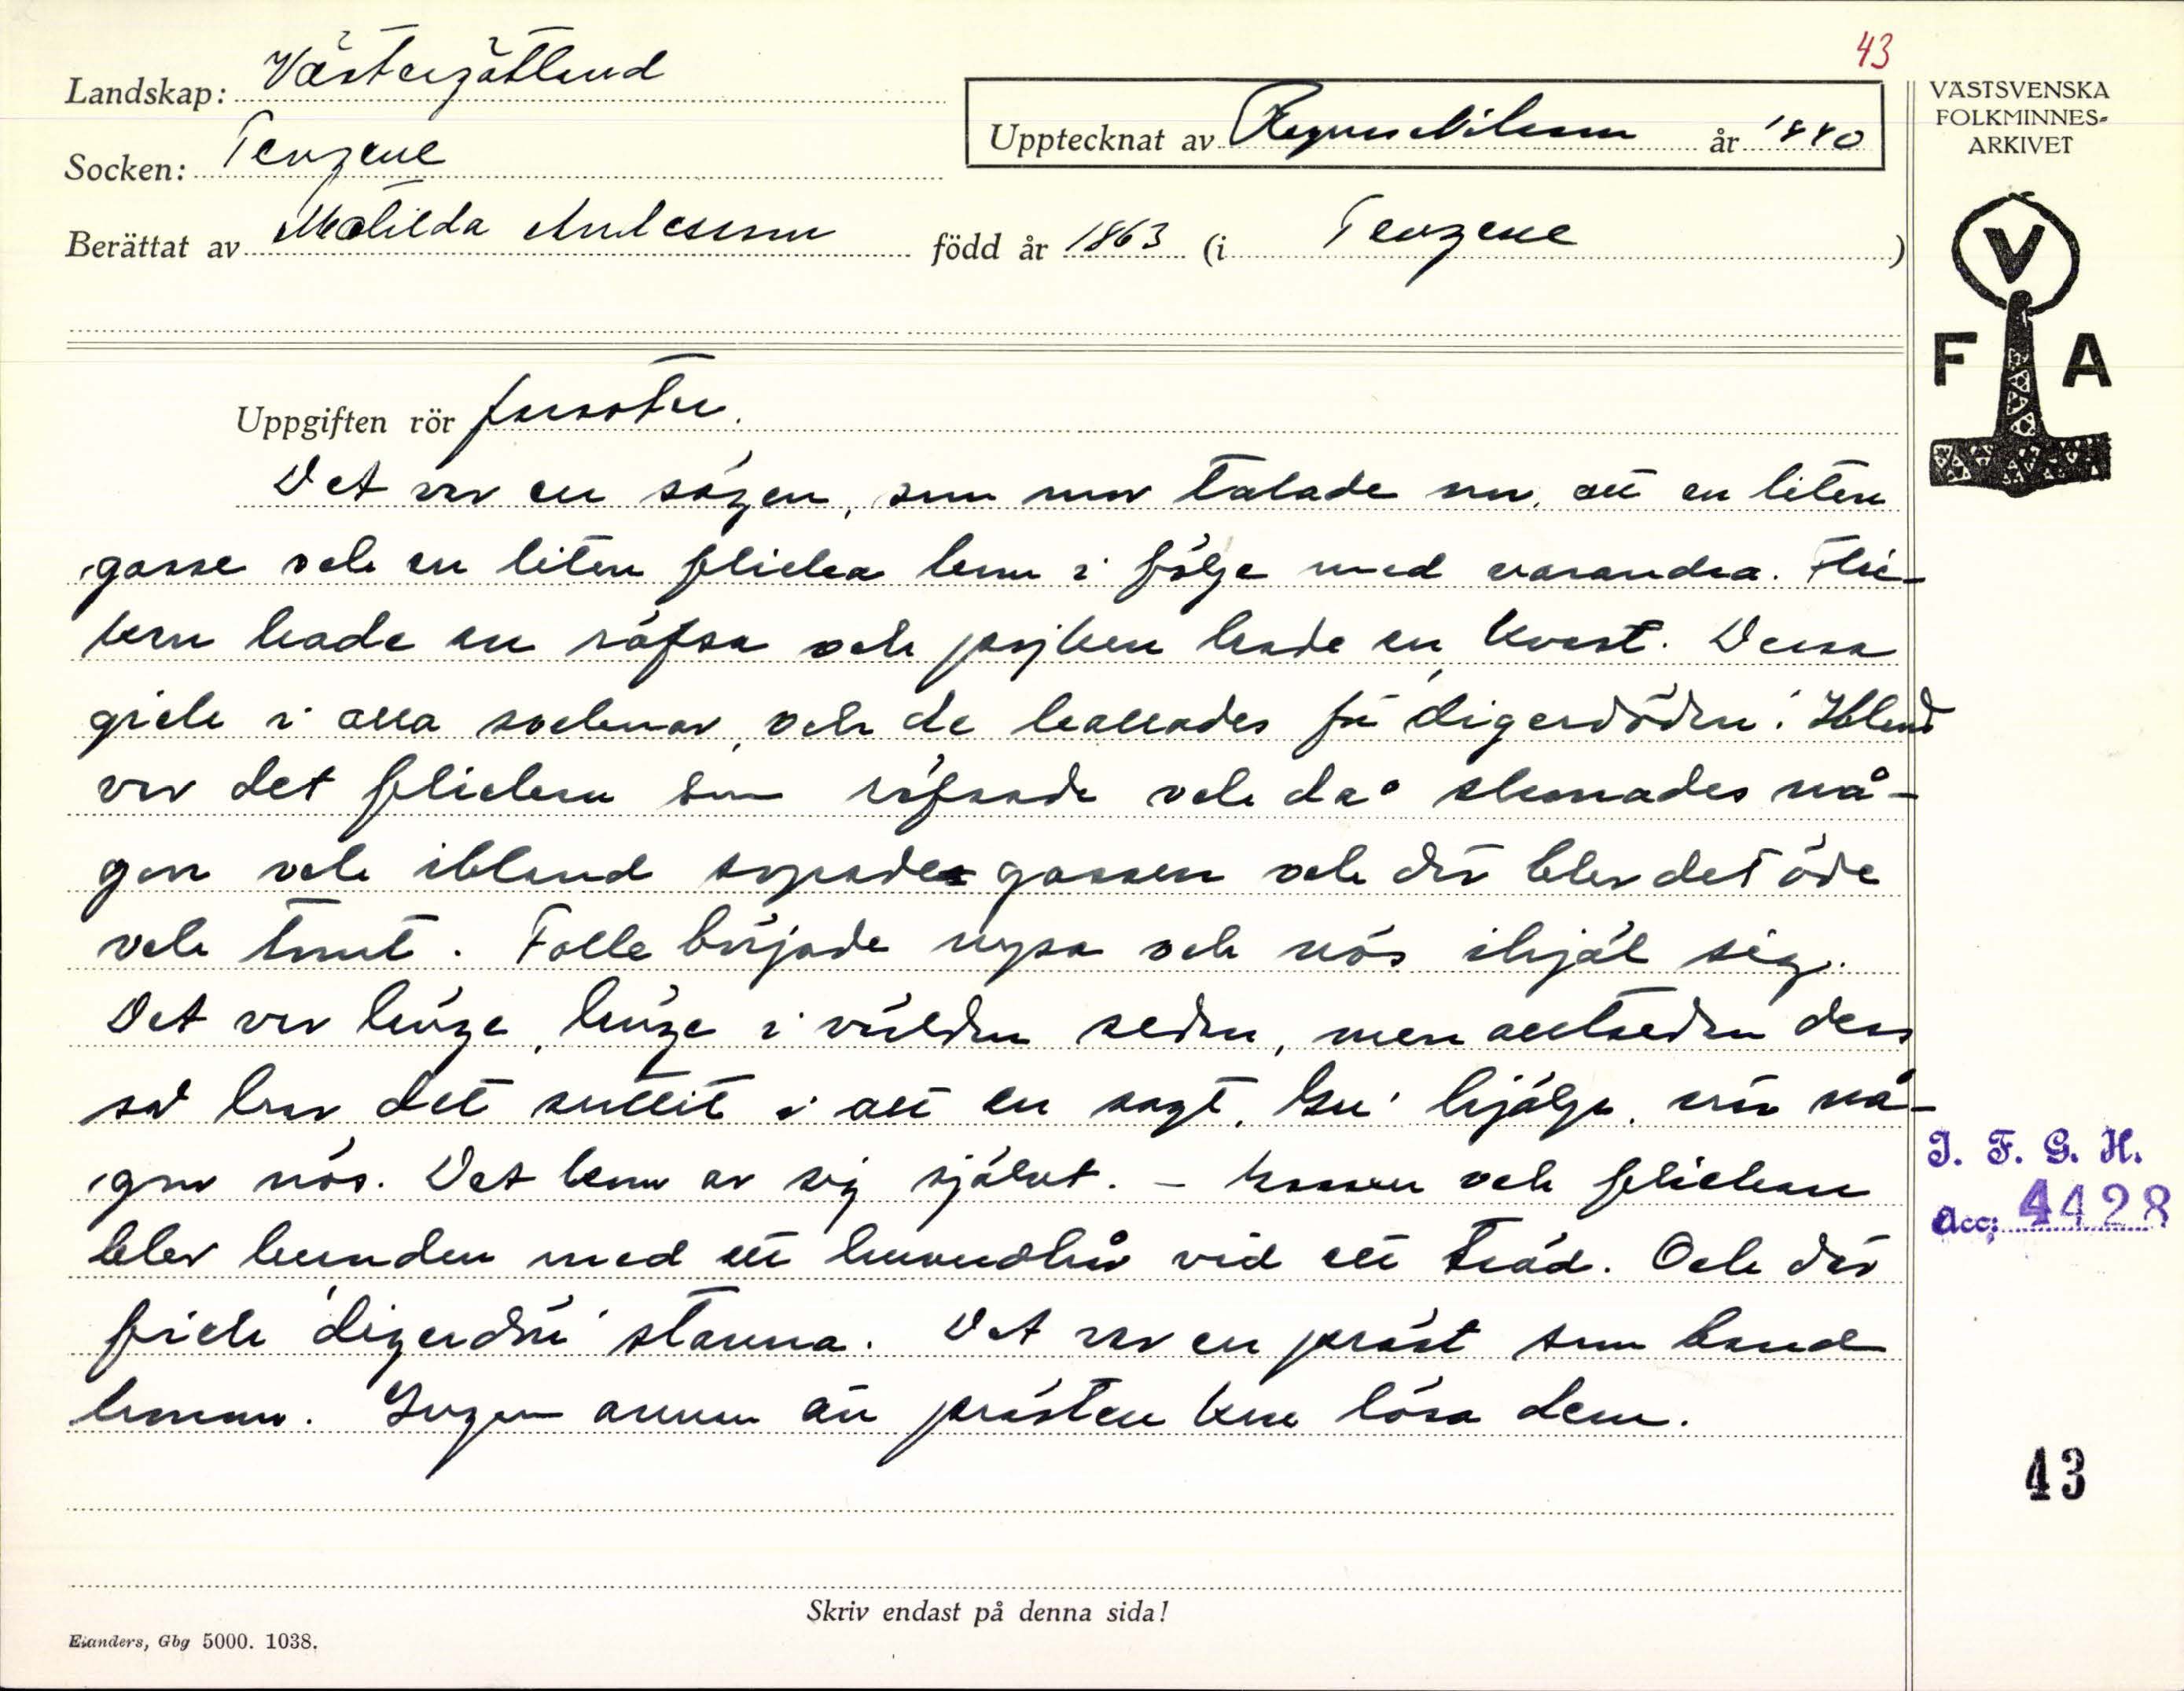 43
Landskap: Västergötland
Socken: Tengene
Upptecknat av Ragnar Nilsson år 1940
Berättat av Matilda Andersson född år 1863 (i Tengene)
VÄSTSVENSKA
FOLKMINNES-
ARKIVET
V
F A
Uppgiften rör farsoter.
Det var en sägen, som mor talade om, att en liten
gosse och en liten flicka kom i följe med varandra. Flic-
kan hade en räfsa och pojken hade en kvast. Dessa
gick i alla socknar, och de kallades för digerdöden. Ibland
var det flickan som räfsade och då skonades nå-
gon och ibland sopade gossen och där blev det öde
och tomt. Folk började nysa och nös ihjäl sig.
Det var länge, länge i världen sedan, men alltsedan dess
så har det suttit i att en sagt, Gu' hjälpe, när nå-
gon nös. Det kom av sig självt. - Gossen och flickan
blev bunden med ett huvudhår vid ett träd. Och där
fick digerdöń stanna. Det var en präst som band
honom. Ingen annan än prästen kan lösa dem.
J. F. G. H.
Acc: 4428
43
Skriv endast på denna sida!
Elanders, Gbg 5000. 1038.